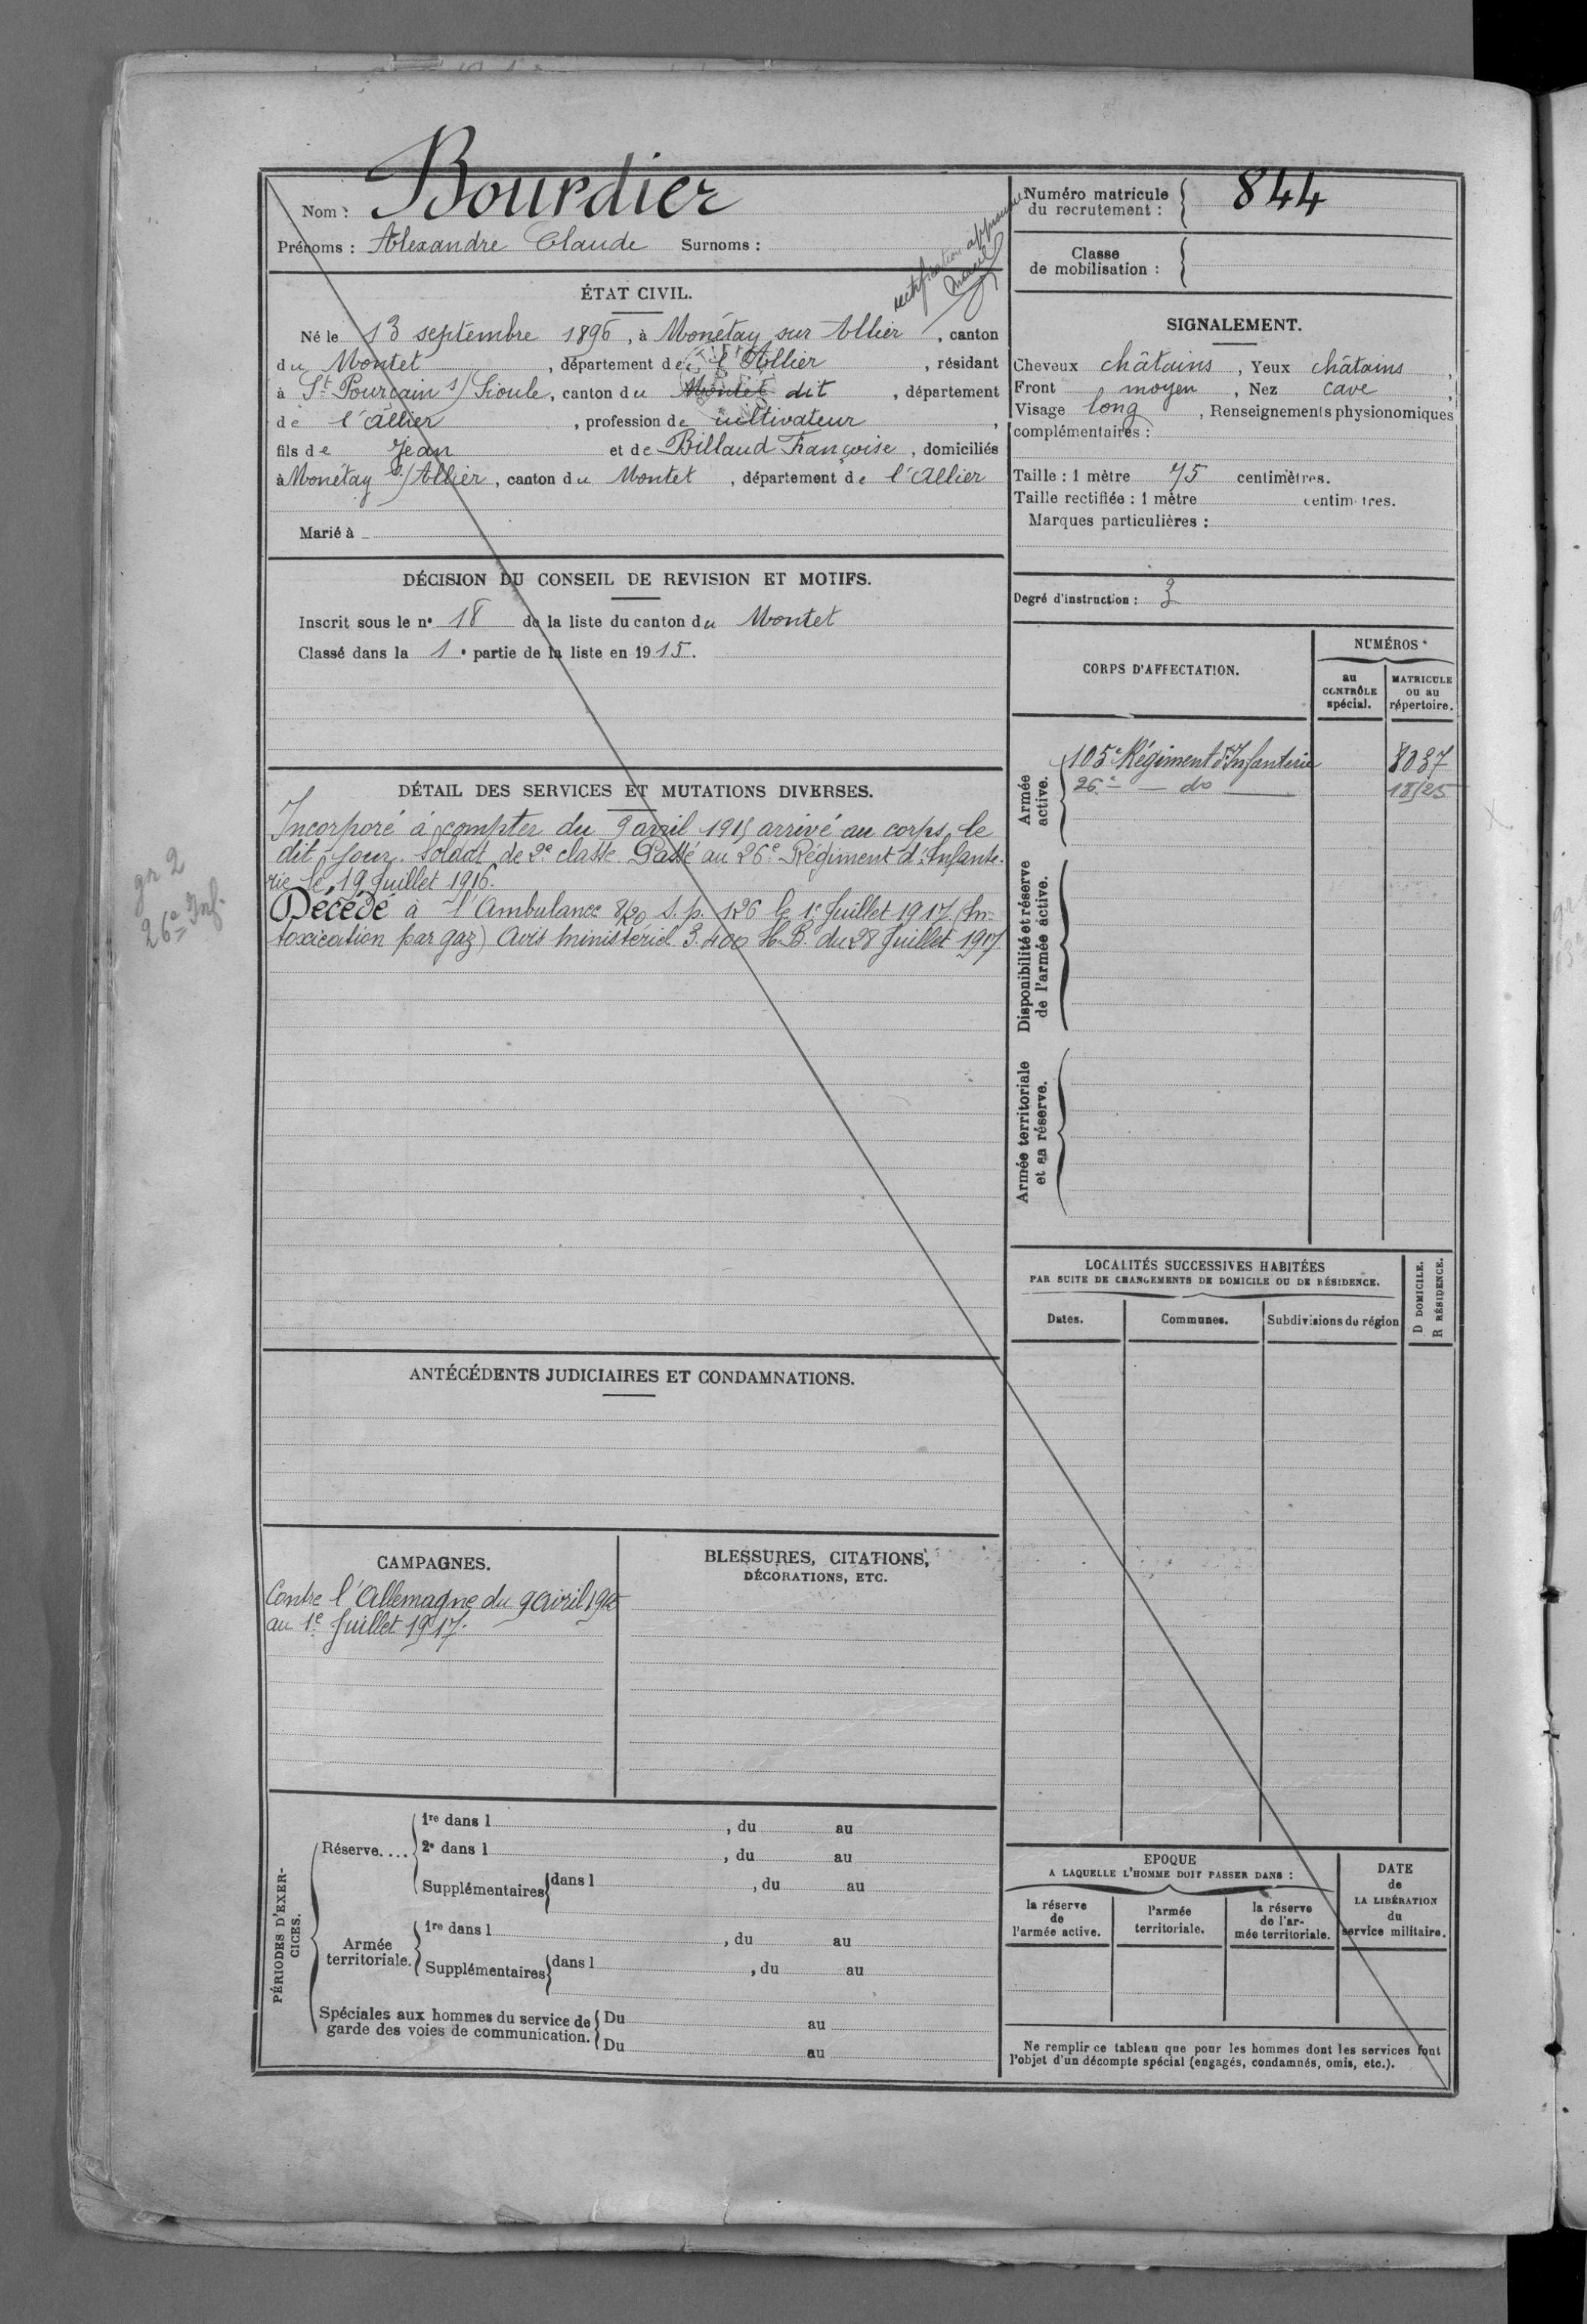 Nom : Bourdier
Prénoms : Alexandre Claude Surnoms :
rectification approuvée
ÉTAT CIVIL.
Né le 13 septembre 1896, à Monétay sur Allier, canton
du Montet, département de l'Allier, résidant
à St Pourçain s/ Sioule, canton du Montet dit, département
de l'Allier, profession de cultivateur,
fils de Jean et de Billaud Françoise, domiciliés
à Monétay s/ Allier, canton du Montet, département de l'Allier
Marié à
DÉCISION DU CONSEIL DE REVISION ET MOTIFS.
Inscrit sous le n° 18 de la liste du canton du Montet
Classé dans la 1e partie de la liste en 1915.
DÉTAIL DES SERVICES ET MUTATIONS DIVERSES.
Incorporé à compter du 9 avril 1915 arrivé au corps le
dit jour. Soldat de 2e classe. Passé au 26e Régiment d'Infante-
rie le 19 Juillet 1916.
Décédé à l'Ambulance 8/20 S. p. 126 le 1e Juillet 1917 (In-
toxication par gaz) Avis ministériel 3.400 H.B. du 28 Juillet 1917
gr 2
26e Inf.
ANTÉCÉDENTS JUDICIAIRES ET CONDAMNATIONS.
CAMPAGNES.
Contre l'Allemagne du 9 avril 1915
au 1e Juillet 1917.
BLESSURES, CITATIONS,
DÉCORATIONS, ETC.
PÉRIODES D'EXER-
CICES.
Réserve....
1re dans l , du au
2e dans l , du au
Supplémentaires dans l , du au
Armée
territoriale.
1re dans l , du au
Supplémentaires dans l , du au
Spéciales aux hommes du service de
garde des voies de communication.
Du au
Du au
Numéro matricule
du recrutement : 844
Classe
de mobilisation :
SIGNALEMENT.
Cheveux châtains, Yeux châtains,
Front moyen, Nez cave,
Visage long, Renseignements physionomiques
complémentaires :
Taille : 1 mètre 75 centimètres.
Taille rectifiée : 1 mètre centimètres.
Marques particulières :
Degré d'instruction : 3
CORPS D'AFFECTATION.
NUMÉROS
au
CONTRÔLE
spécial.
MATRICULE
ou au
répertoire.
Armée
active.
105e Régiment d'Infanterie 8037
26e — do — 18525
Disponibilité et réserve
de l'armée active.
Armée territoriale
et sa réserve.
LOCALITÉS SUCCESSIVES HABITÉES
PAR SUITE DE CHANGEMENTS DE DOMICILE OU DE RÉSIDENCE.
Dates.
Communes.
Subdivisions de région
D DOMICILE.
R RÉSIDENCE.
EPOQUE
A LAQUELLE L'HOMME DOIT PASSER DANS :
la réserve
de
l'armée active.
l'armée
territoriale.
la réserve
de l'ar-
mée territoriale.
DATE
de
LA LIBÉRATION
du
service militaire.
Ne remplir ce tableau que pour les hommes dont les services font
l'objet d'un décompte spécial (engagés, condamnés, omis, etc.).